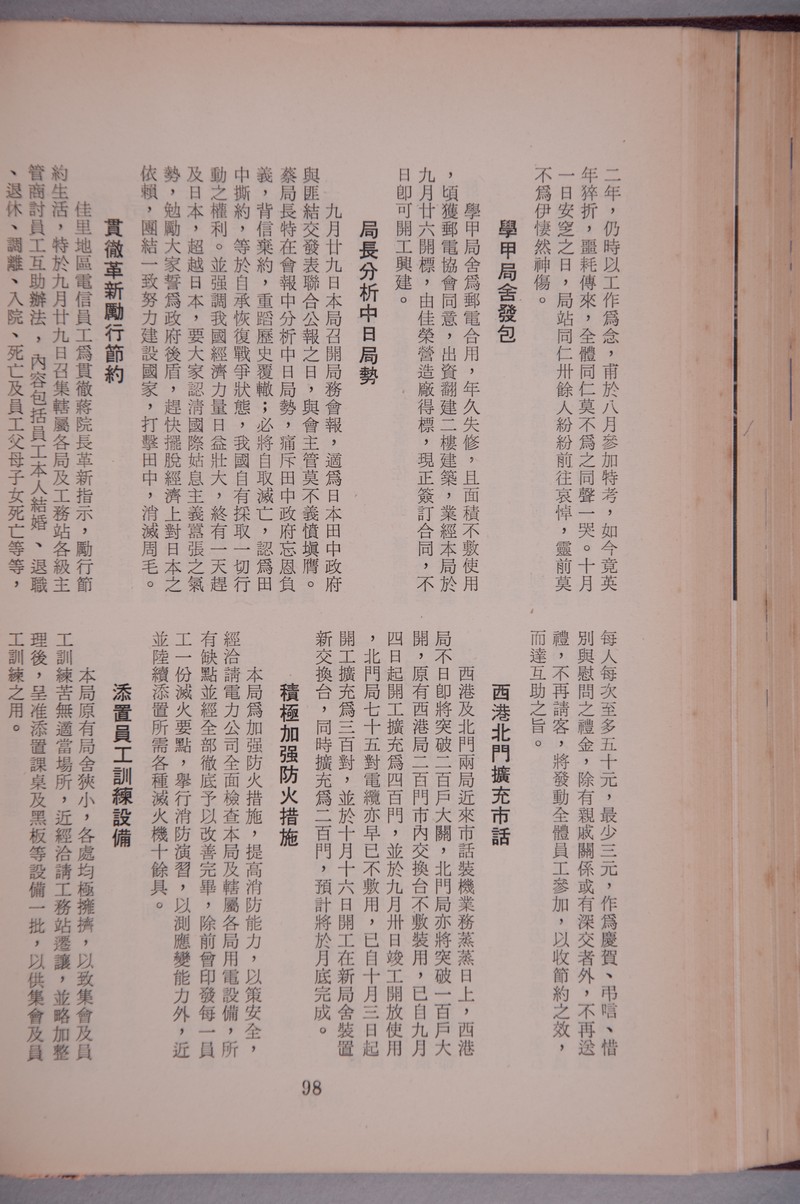 二年，仍時以工作爲念，甫於八月參加特考，如今竟英
年猝折，噩耗傳來，全體同仁莫不爲之同聲一哭。十月
一日安窆之日，局站同仁卅餘人紛紛前往哀悼，靈前莫
不爲伊悽然神傷。
學甲局舍發包
學甲局舍爲郵電合用，年久失修，且面積不敷使用
，頃獲郵電協會同意，出資翻建二樓建築，業經本局於
九月廿六開標，由佳榮營造廠得標，現正簽訂合同，不
日卽可開工興建。
局長分析中日局勢
九月廿九日本局召開局務會報，適爲日本田中政府
與匪結交發表聯合公報之日，與會主管莫不義憤塡膺。
蔡局長特在會報中分析中日局勢，痛斥田中政府忘恩負
義，背信棄約，重蹈歷史覆轍；必將自取滅亡，認爲田
中撕約，等於自承恢復戰爭狀態，我國自有採取一切行
動之權利。並强調我國經濟力量日益壯大，終有一天趕
及日本，超越日本，要大家認清國際姑息主義囂張之氣
勢，勉勵大家誓爲政府後盾，趕快擺脫經濟上對日本之
依賴，團結一致努力建設國家，打擊田中，消滅周毛。
貫徹革新勵行節約
佳里地區電信員工爲貫徹蔣院長革新指示，勵行節
約生活，特於九月廿九日召集轄屬各局及工務站各級主
管商討員工互助辦法，內容包括員工本人結婚、退職
、退休、調離、入院、死亡及員工父母子女死亡等等，
每人每次至多五十元，最少三元，作爲慶賀、弔唁、惜
別與慰問之禮金，除有親戚關係或有深交者外，不再送
禮，不再請客，將發動全體員工參加，以收節約之效，
而達互助之旨。
西港北門擴充市話
西港及北門兩局近來市話裝機業務蒸蒸日上，西港
局不日卽將突破二百戶大關，北門局亦將突破一百戶大
開，原有西港局二百門市內交換台不敷裝用，已自九月
四日起開工擴充爲四百門，並於九月卅日竣工開放使用
，北門局七十五對電纜亦早已不敷用，已自十月三日起
開工擴充爲三百對，並於十月十六日開工在新局舍裝置
新交換台，同時擴充爲二百門，預計將於月底完成。
積極加强防火措施
本局爲加强防火措施，提高消防能力，以策安全，
經洽請電力公司全面檢查本局及轄屬各局用電設備，所
有缺點並經全部徹底予以改善完畢，除前會印發每一員
工一份滅火要點，舉行消防演習，以測應變能力外，近
並陸續添置所需各種滅火機十餘具。
添置員工訓練設備
本局原有局舍狹小，各處均極擁擠，以致集會及員
工訓練苦無適當場所，近經洽請工務站遷讓，並略加整
理後，呈准添置課桌及黑板等設備一批，以供集會及員
工訓練之用。
98